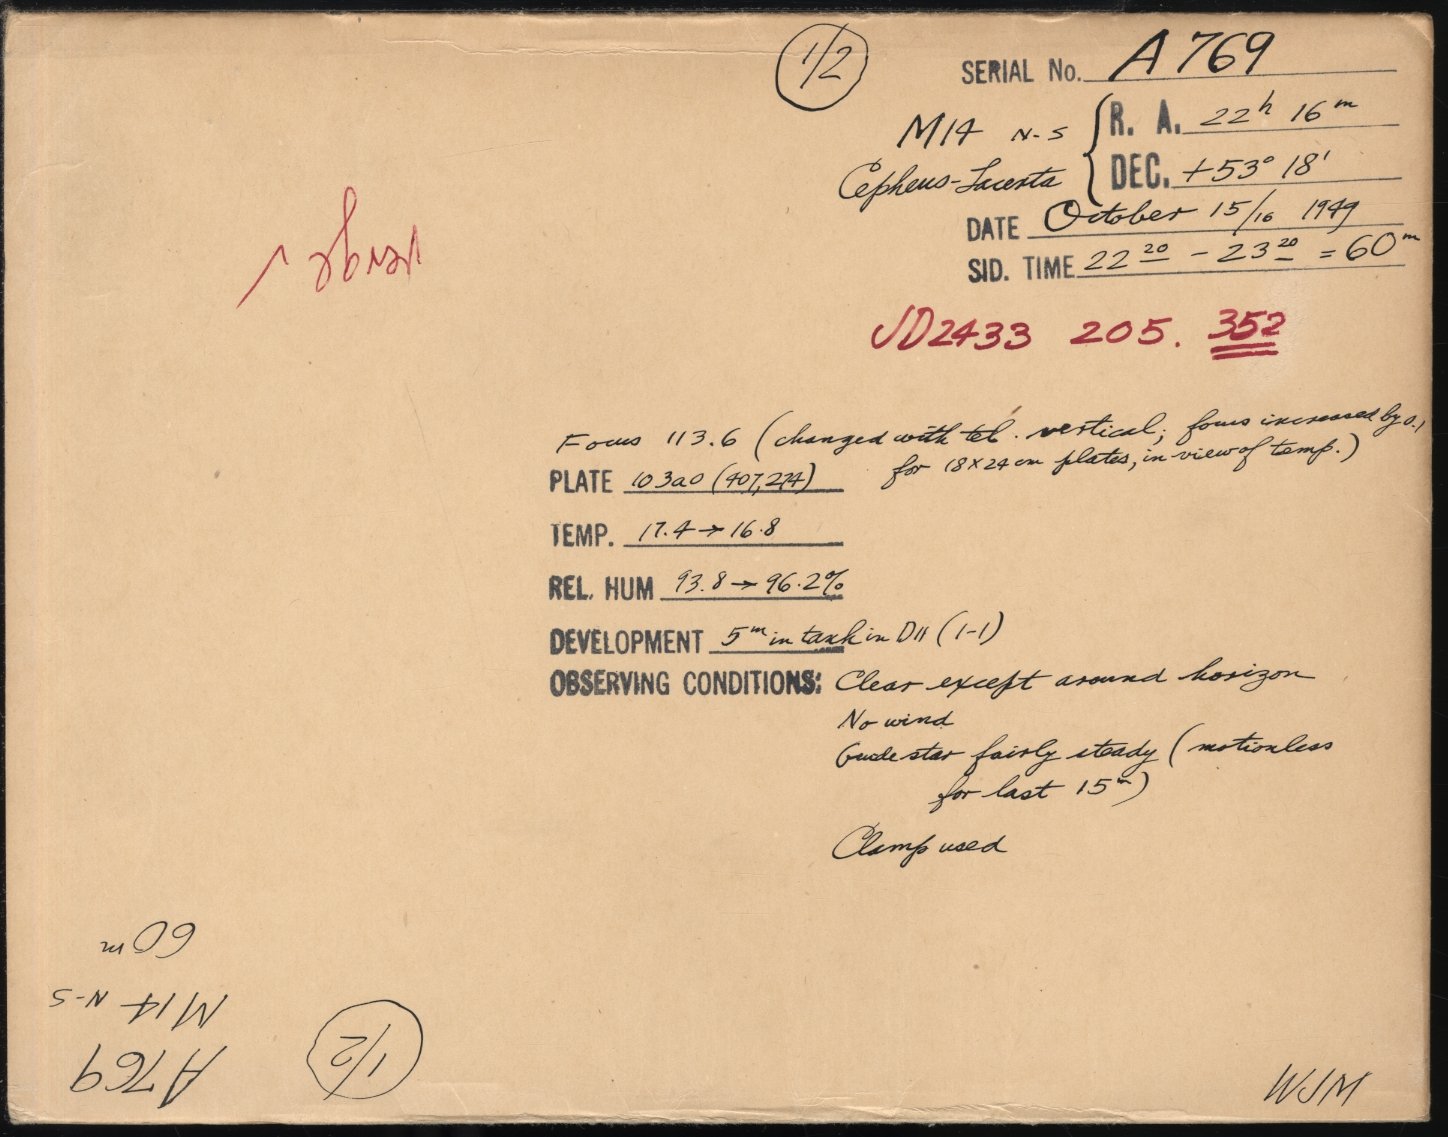 1/2
SERIAL No. A 769
M14 N-S
R. A. 22h 16m
Cepheus-Lacerta
DEC. +53° 18'
DATE October 15/16 1949
SID. TIME 22 20 - 23 20 = 60m
JD2433 205. 352
Focus 113.6 (changed with tel. vertical; focus increased by 0.1
for 18x24 cm plates, in view of temp.)
PLATE 103aO (407,274)
TEMP. 17.4 → 16.8
REL. HUM 93.8 → 96.2%
DEVELOPMENT 5m in tank in D11 (1-1)
OBSERVING CONDITIONS: Clear except around horizon
No wind
Guide star fairly steady (motionless
for last 15m)
Clamp used
60m
M14 N-S
A769
1/2
WJM